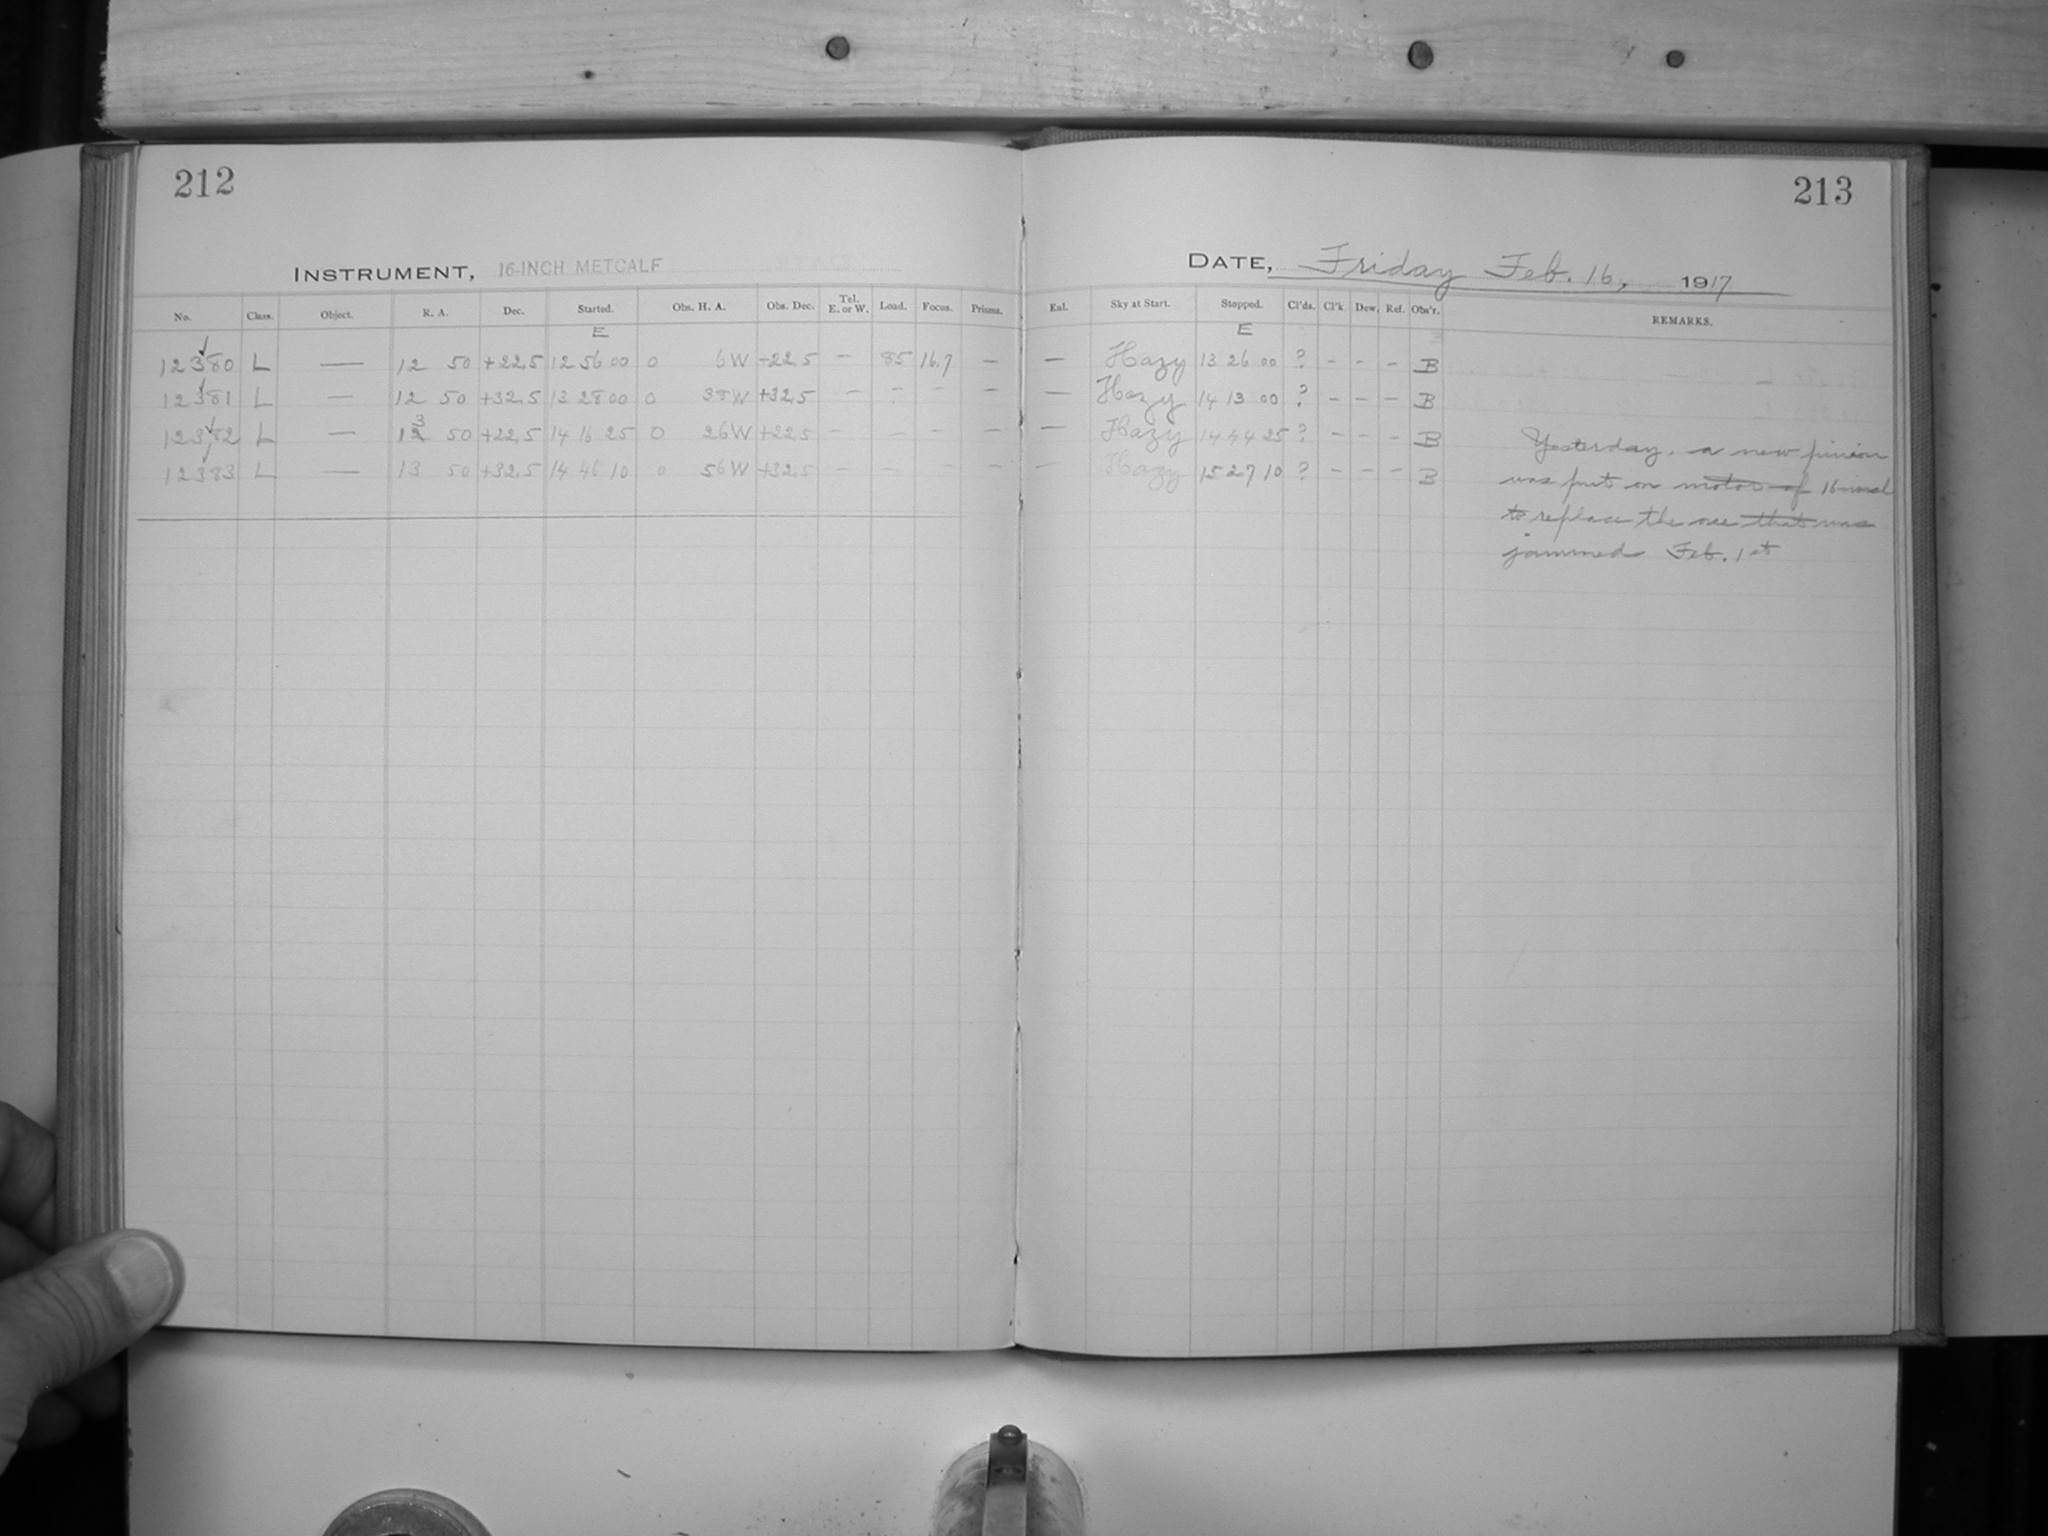 212
213
INSTRUMENT, 16-INCH METCALF
DATE, Friday Feb. 16, 1917
No. Class. Object. R. A. Dec. Started. Obs. H. A. Obs. Dec. Tel. E. or W. Load. Focus. Prisms. Enl. Sky at Start. Stopped. Cl'ds. Cl'k. Dew. Ref. Obs'r. REMARKS.
E E
12380 L — 12 50 +22.5 12 56 00 0 6W +22.5 — 85 16.7 — — Hazy 13 26 00 ? - - - B
12381 L — 12 50 +32.5 13 28 00 0 38W +32.5 — - — — — Hazy 14 13 00 ? - - - B
12382 L — 13 50 +22.5 14 16 25 0 26W +22.5 — — — — — Hazy 14 44 25 ? - - - B
12383 L — 13 50 +32.5 14 46 10 0 56W +32.5 — — — — — Hazy 15 27 10 ? - - - B
Yesterday, a new pinion
was put on motor of 16
to replace the one that was
jammed Feb. 1st